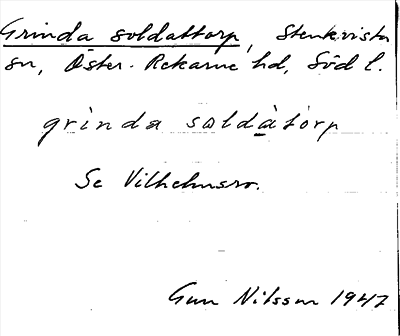 Grinda soldattorp, Stenkvista
sn, Öster-Rekarne hd, Söd l.
grìnda saldàtòrp
Se Vilhelmsro.
Gun Nilsson 1947